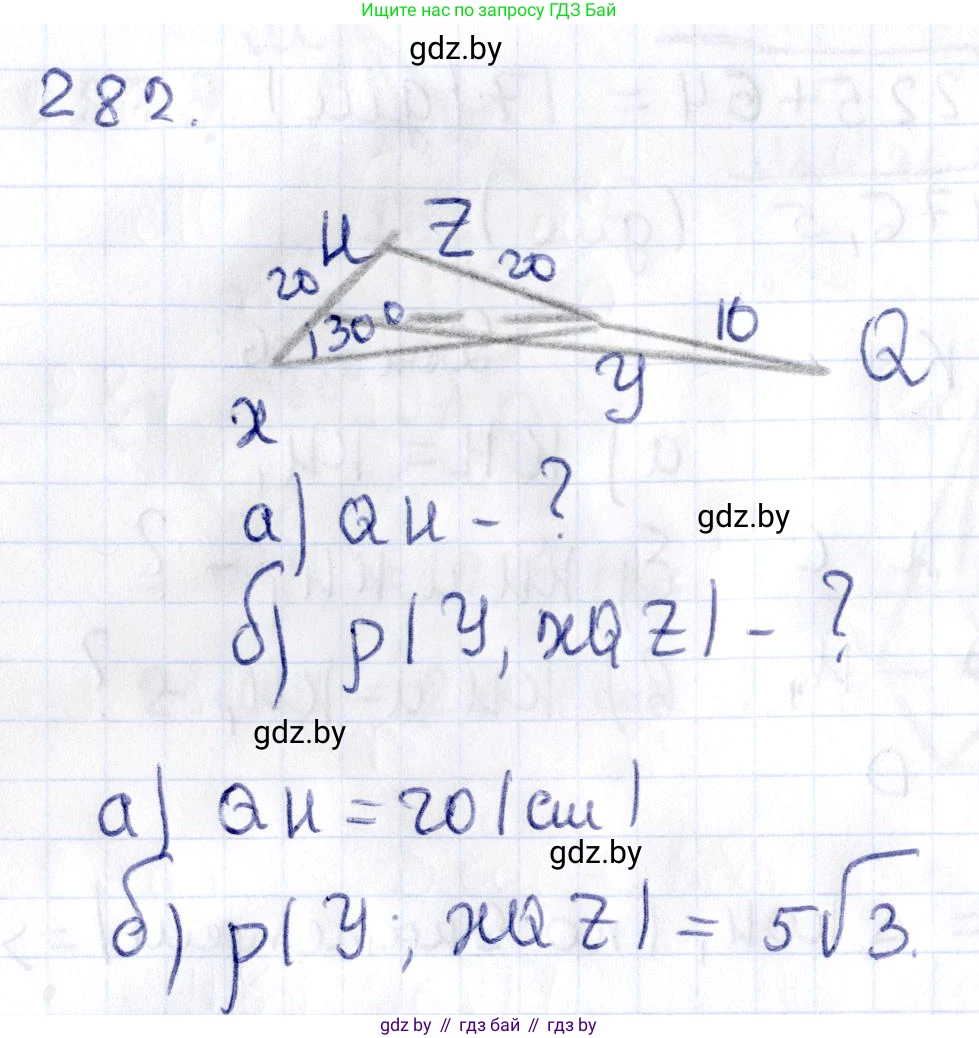 Ищите нас по запросу ГДЗ Бай
gdz.by
282.
H Z
20 20
130° 10
Q
x y
а) QH - ?
gdz.by
б) ρ(y, xQZ) - ?
gdz.by
а) QH = 20 (см)
gdz.by
б) ρ(y; xQZ) = 5√3.
gdz.by // гдз бай // gdz by